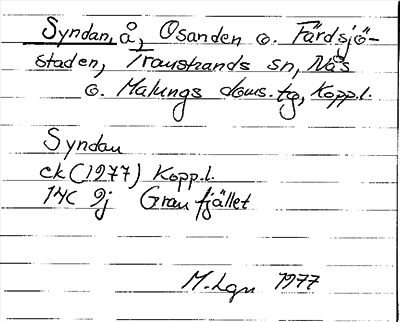 Syndan, å, Osanden o. Färdsjö-
staden, Transtrands sn, Nås
o. Malungs doms. tg, Kopp.l.
Syndan
ek (1977) Kopp.l.
14C 9j Granfjället
M. Lgn 1977